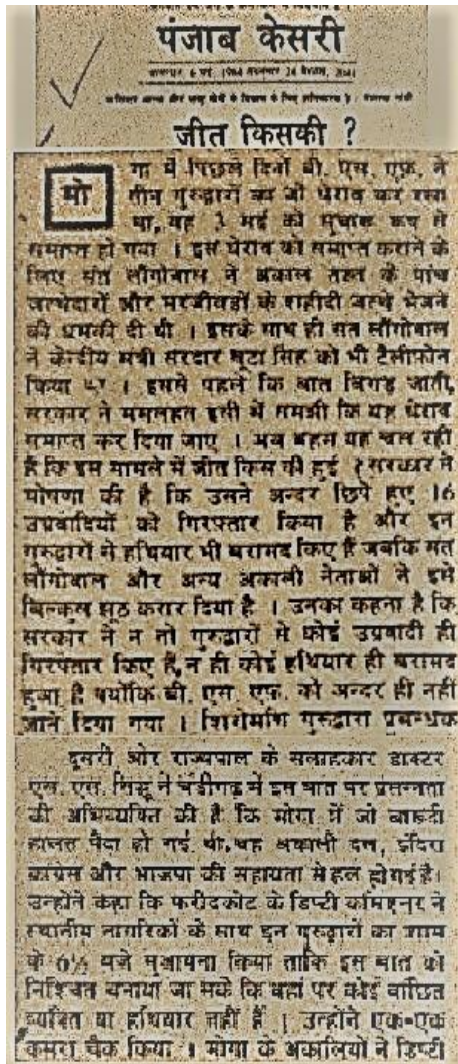 पंजाब केसरी
जीत किसकी ?
मो
गा में पिछले दिनों बी. एस. एफ. ने
तीन गुरुद्वारों का जो घेराव कर रखा
था, वह 3 मई को सुचारू रूप से
समाप्त हो गया । इस घेराव को समाप्त कराने के
लिए संत लौंगोवाल ने अकाल तख्त के पांच
जत्थेदारों और मरजीवड़ों के शहीदी जत्थे भेजने
की धमकी दी थी । इसके साथ ही संत लौंगोवाल
ने केन्द्रीय मंत्री सरदार बूटा सिंह को भी टैलीफोन
किया था । इससे पहले कि बात बिगड़ जाती,
सरकार ने मसलहत इसी में समझी कि यह घेराव
समाप्त कर दिया जाए । अब बहस यह चल रही
है कि इस मामले में जीत किस की हुई ? सरकार ने
घोषणा की है कि उसने अन्दर छिपे हुए 16
उग्रवादियों को गिरफ्तार किया है और इन
गुरुद्वारों से हथियार भी बरामद किए हैं जबकि संत
लौंगोवाल और अन्य अकाली नेताओं ने इसे
बिल्कुल झूठ करार दिया है । उनका कहना है कि
सरकार ने न तो गुरुद्वारों से कोई उग्रवादी ही
गिरफ्तार किए हैं, न ही कोई हथियार ही बरामद
हुआ है क्योंकि बी. एस. एफ. को अन्दर ही नहीं
जाने दिया गया । शिरोमणि गुरुद्वारा प्रबन्धक
दूसरी ओर राज्यपाल के सलाहकार डाक्टर
एस. एस. सिद्धू ने चंडीगढ़ में इस बात पर प्रसन्नता
की अभिव्यक्ति की है कि मोगा में जो बारूदी
हालत पैदा हो गई थी, वह अकाली दल, इंदिरा
कांग्रेस और भाजपा की सहायता से हल हो गई है।
उन्होंने कहा कि फरीदकोट के डिप्टी कमिश्नर ने
स्थानीय नागरिकों के साथ इन गुरुद्वारों का शाम
के 6½ बजे मुआयना किया ताकि इस बात को
निश्चित बनाया जा सके कि वहां पर कोई वांछित
व्यक्ति या हथियार नहीं हैं । उन्होंने एक-एक
कमरा चैक किया । मोगा के अकालियों ने डिप्टी